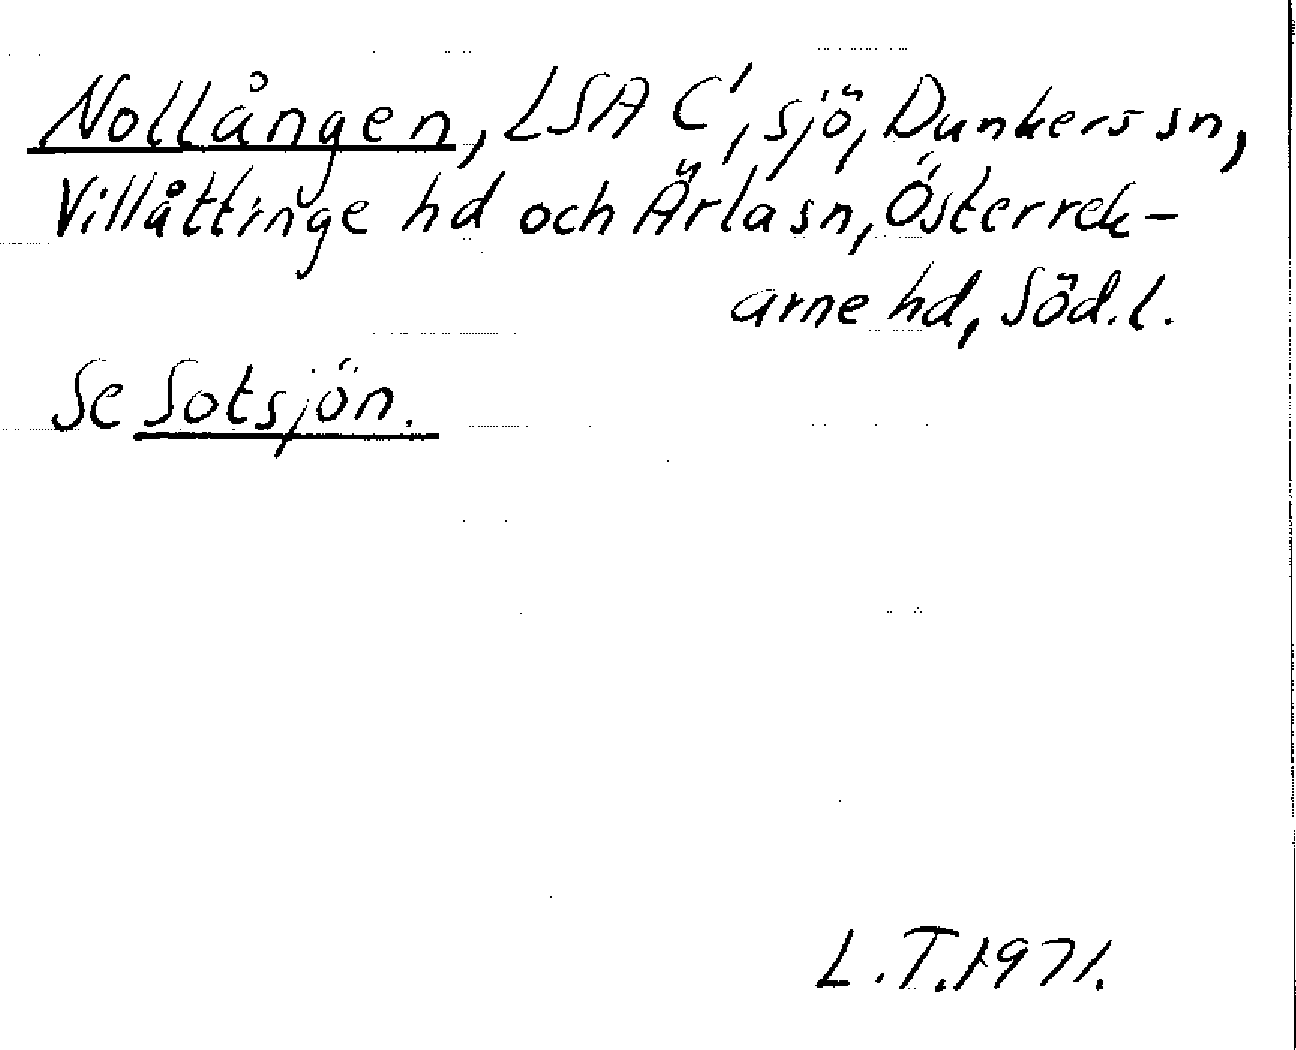 Nollången, LSA C', sjö, Dunkers sn,
Villåttinge hd och Ärla sn, Österrek-
arne hd, Söd.l.
Se Sotsjön.
L.T.1971.